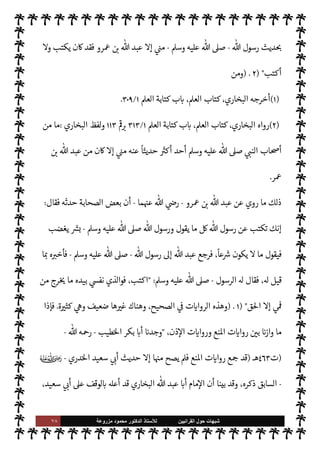 بحديث رسول الله - صلى الله عليه وسلم - مني إلا عبد الله بن عمرو فقد كان يكتب ولا
أكتب" (٢) . (ومن
(١)أخرجه البخاري، كتاب العلم، باب كتابة العلم ٣٠٩/١.
(٢)رواه البخاري، كتاب العلم، باب كتابة العلم ٣١٣/١ برقم ١١٣ ولفظ البخاري :ما من
أصحاب النبي صلى الله عليه وسلم أحد أكثر حديثاً عنه مني إلا كان من عبد الله بن
عمر.
ذلك ما روي عن عبد الله بن عمرو - رضي الله عنهما - أن بعض الصحابة حدثه فقال:
إنك تكتب عن رسول الله كل ما يقول ورسول الله صلى الله عليه وسلم - بشر يغضب
فيقول ما لا يكون شرعاً، فرجع عبد الله إلى رسول الله - صلى الله عليه وسلم - فأخبره بما
قيل له، فقال له الرسول - صلى الله عليه وسلم: "اكتب، فوالذي نفسي بيده ما يخرج من
فمي إلا الحق" (١) . (وهذه الروايات في الصحيح، وهناك غيرها ضعيف وهي كثيرة. فإذا
ما وازنا بين روايات المنع وروايات الإذن، "وجدنا أبا بكر الخطيب - رحمه الله -
(ت٤٦٣هـ (قد جمع روايات المنع فلم يصح منها إلا حديث أبي سعيد الخدري - ﷺ
- السابق ذكره، وقد بينا أن الإمام أبا عبد الله البخاري قد أعله بالوقف على أبي سعيد،
شبهات حول القرآنيين للأستاذ الدكتور محمود مزروعة